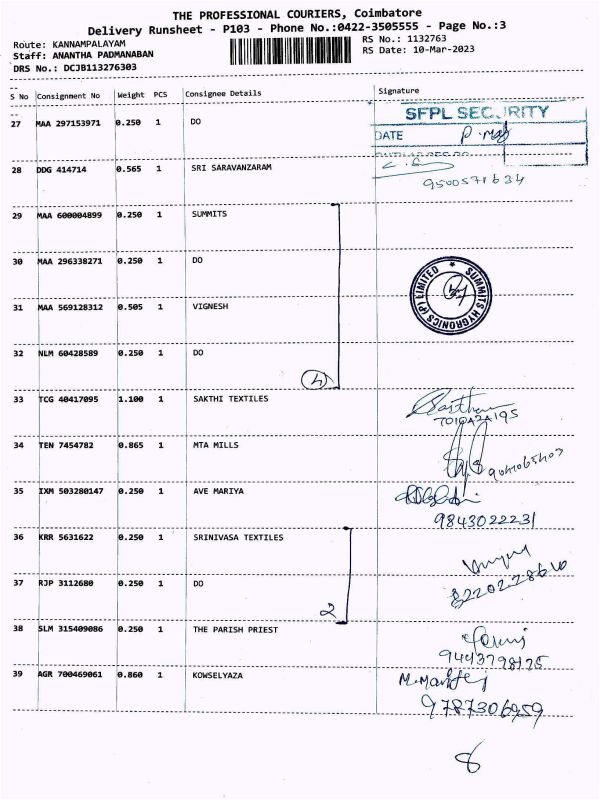 THE PROFESSIONAL COURIERS, Coimbatore
Delivery Runsheet - P103 - Phone No.:0422-3505555 - Page No.:3
Route: KANNAMPALAYAM
RS No.: 1132763
Staff: ANANTHA PADMANABAN
RS Date: 10-Mar-2023
DRS No.: DCJB113276303
S No Consignment No Weight PCS Consignee Details Signature
27 MAA 297153971 0.250 1 DO
SFPL SECURITY
DATE
28 DDG 414714 0.565 1 SRI SARAVANZARAM
9500571634
29 MAA 600004899 0.250 1 SUMMITS
30 MAA 296338271 0.250 1 DO
SUMMITS HYGRONICS (P) LIMITED
31 MAA 569128312 0.505 1 VIGNESH
32 NLM 60428589 0.250 1 DO
4
33 TCG 40417095 1.100 1 SAKTHI TEXTILES
34 TEN 7454782 0.865 1 MTA MILLS
35 IXM 503280147 0.250 1 AVE MARIYA
9843022231
36 KRR 5631622 0.250 1 SRINIVASA TEXTILES
37 RJP 3112680 0.250 1 DO
2
38 SLM 315409086 0.250 1 THE PARISH PRIEST
9443798175
39 AGR 700469061 0.860 1 KOWSELYAZA
9787306959
8